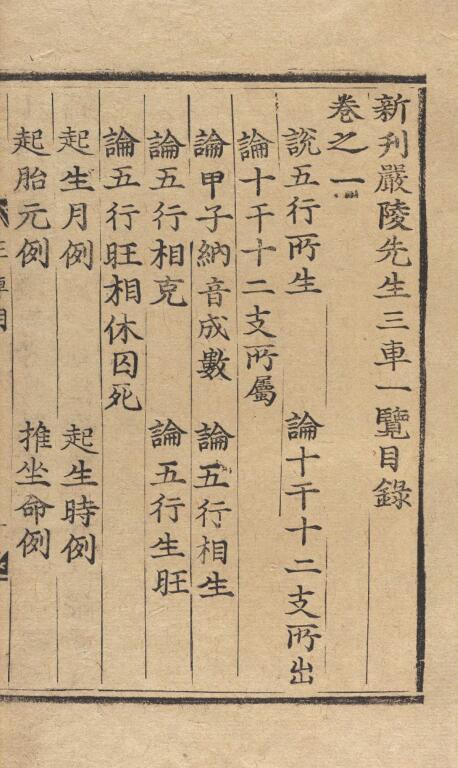 新刋嚴陵先生三車一覽目錄
卷之一
說五行所生　論十干十二支所出
論十干十二支所屬
論甲子納音成數　論五行相生
論五行相克　論五行生旺
論五行旺相休囚死
起生月例　起生時例
起胎元例　推坐命例